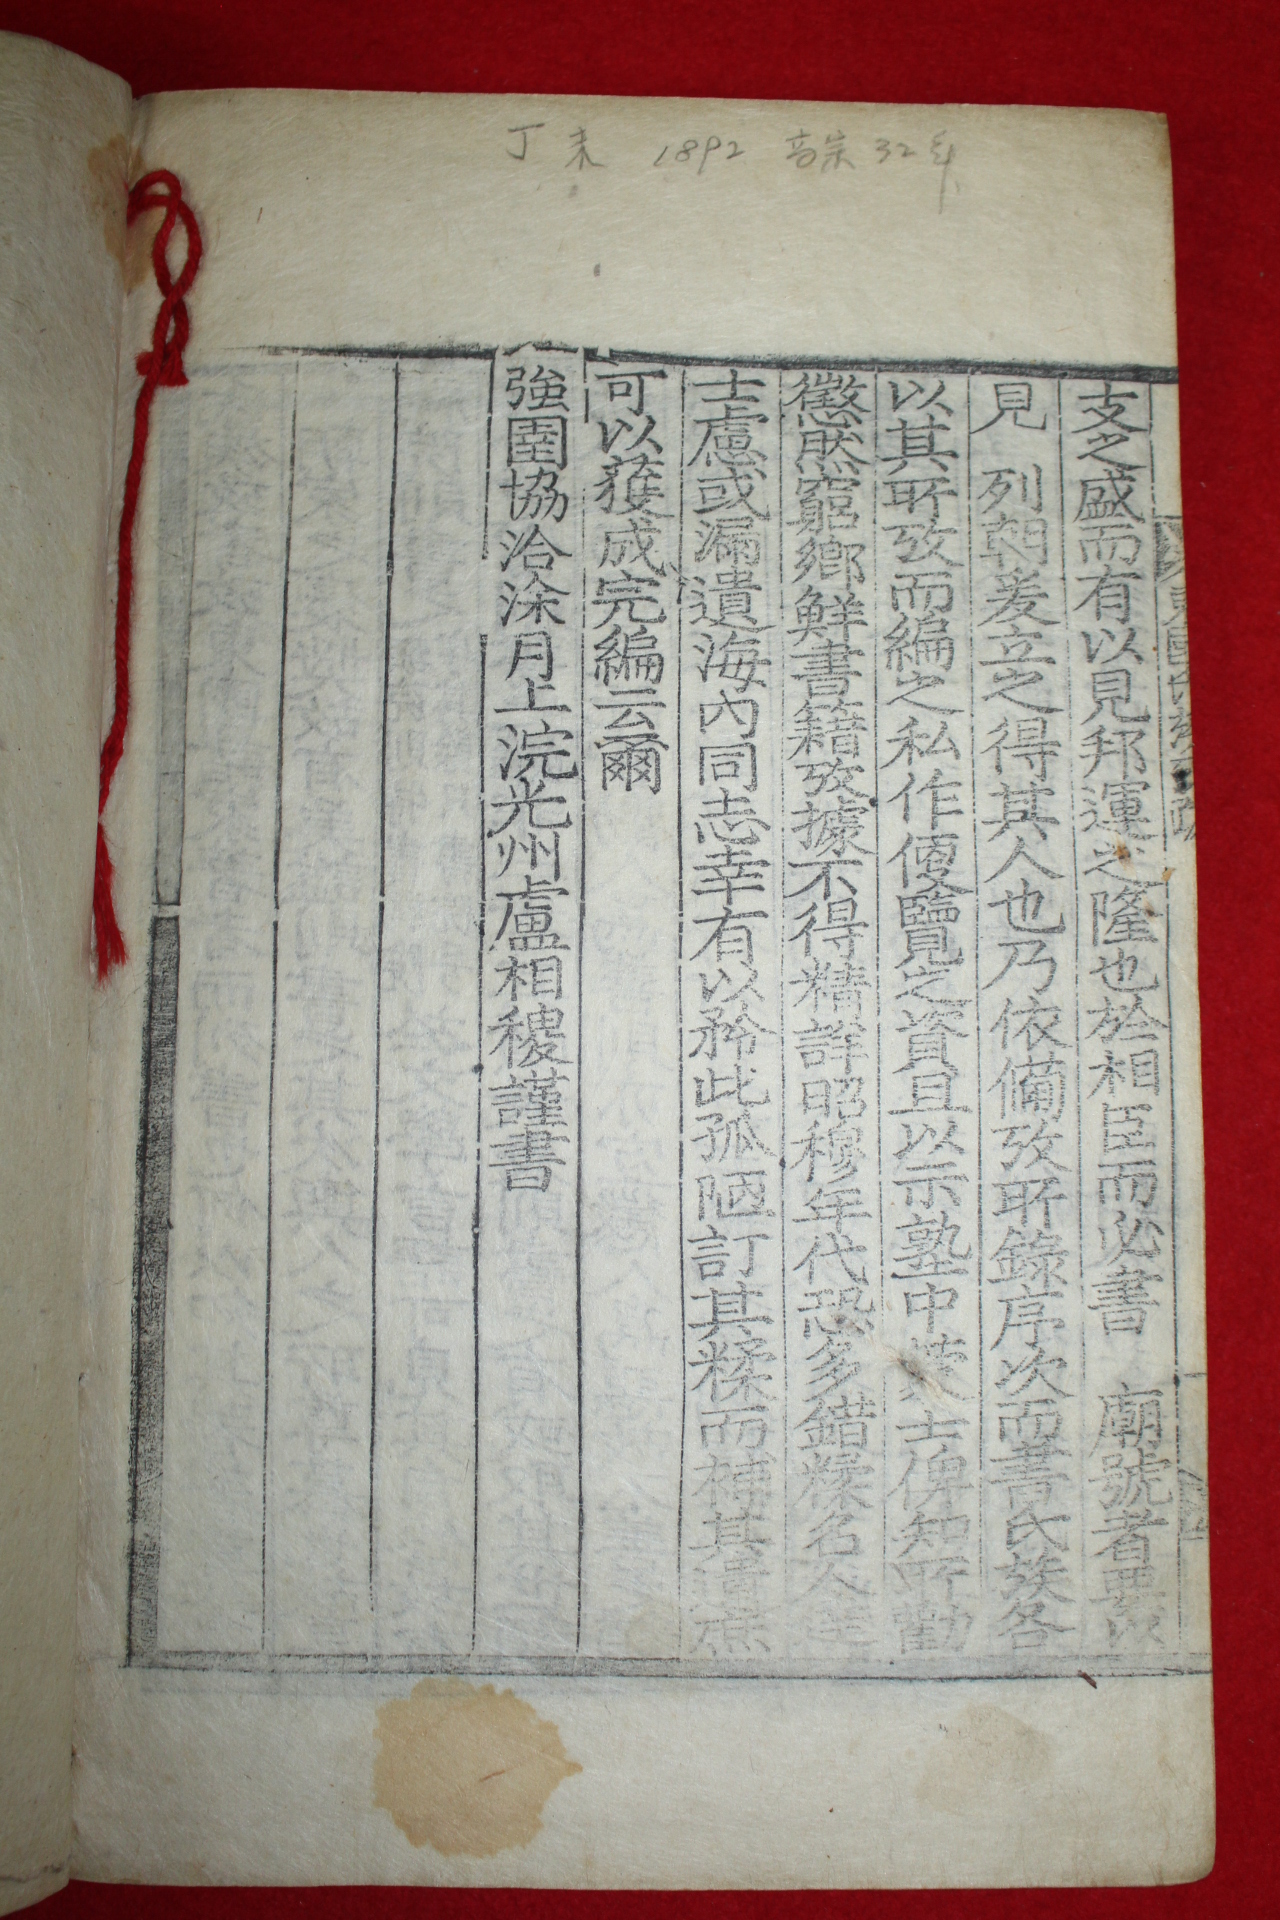 丁未 1892 高宗 32年
支之盛而有以見邦運之隆也於相臣而必書 廟號者要以
見 列朝爰立之得其人也乃依備攷所錄序次而書氏族各
以其所攷而編之私作便覽之資且以示塾中蒙士俾知所勸
懲然窮鄉鮮書籍攷據不得精詳昭穆年代恐多錯糅名人
士慮或漏遺海內同志幸有以矜此孤陋訂其糅而補其遺庶
可以獲成完編云爾
強圉協洽涂月上浣光州盧相稷謹書